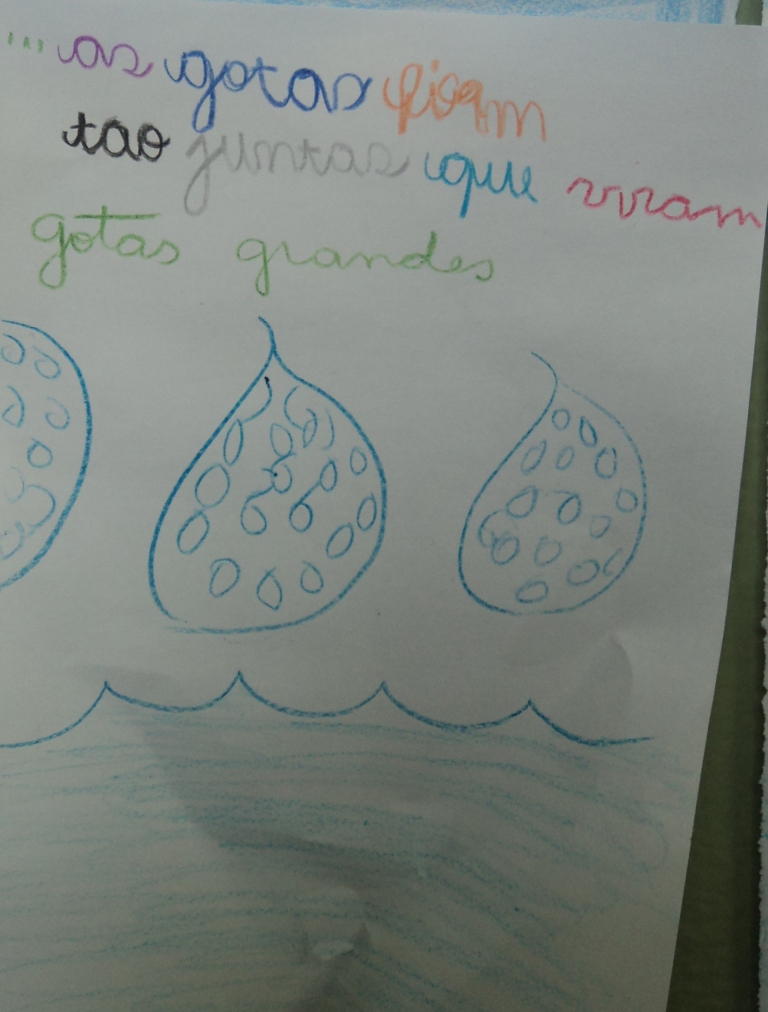 ... as gotas ficam
tao juntas que viram
gotas grandes